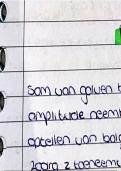 Som van golven
amplitude neemt
optellen van
zodra z toeneemt